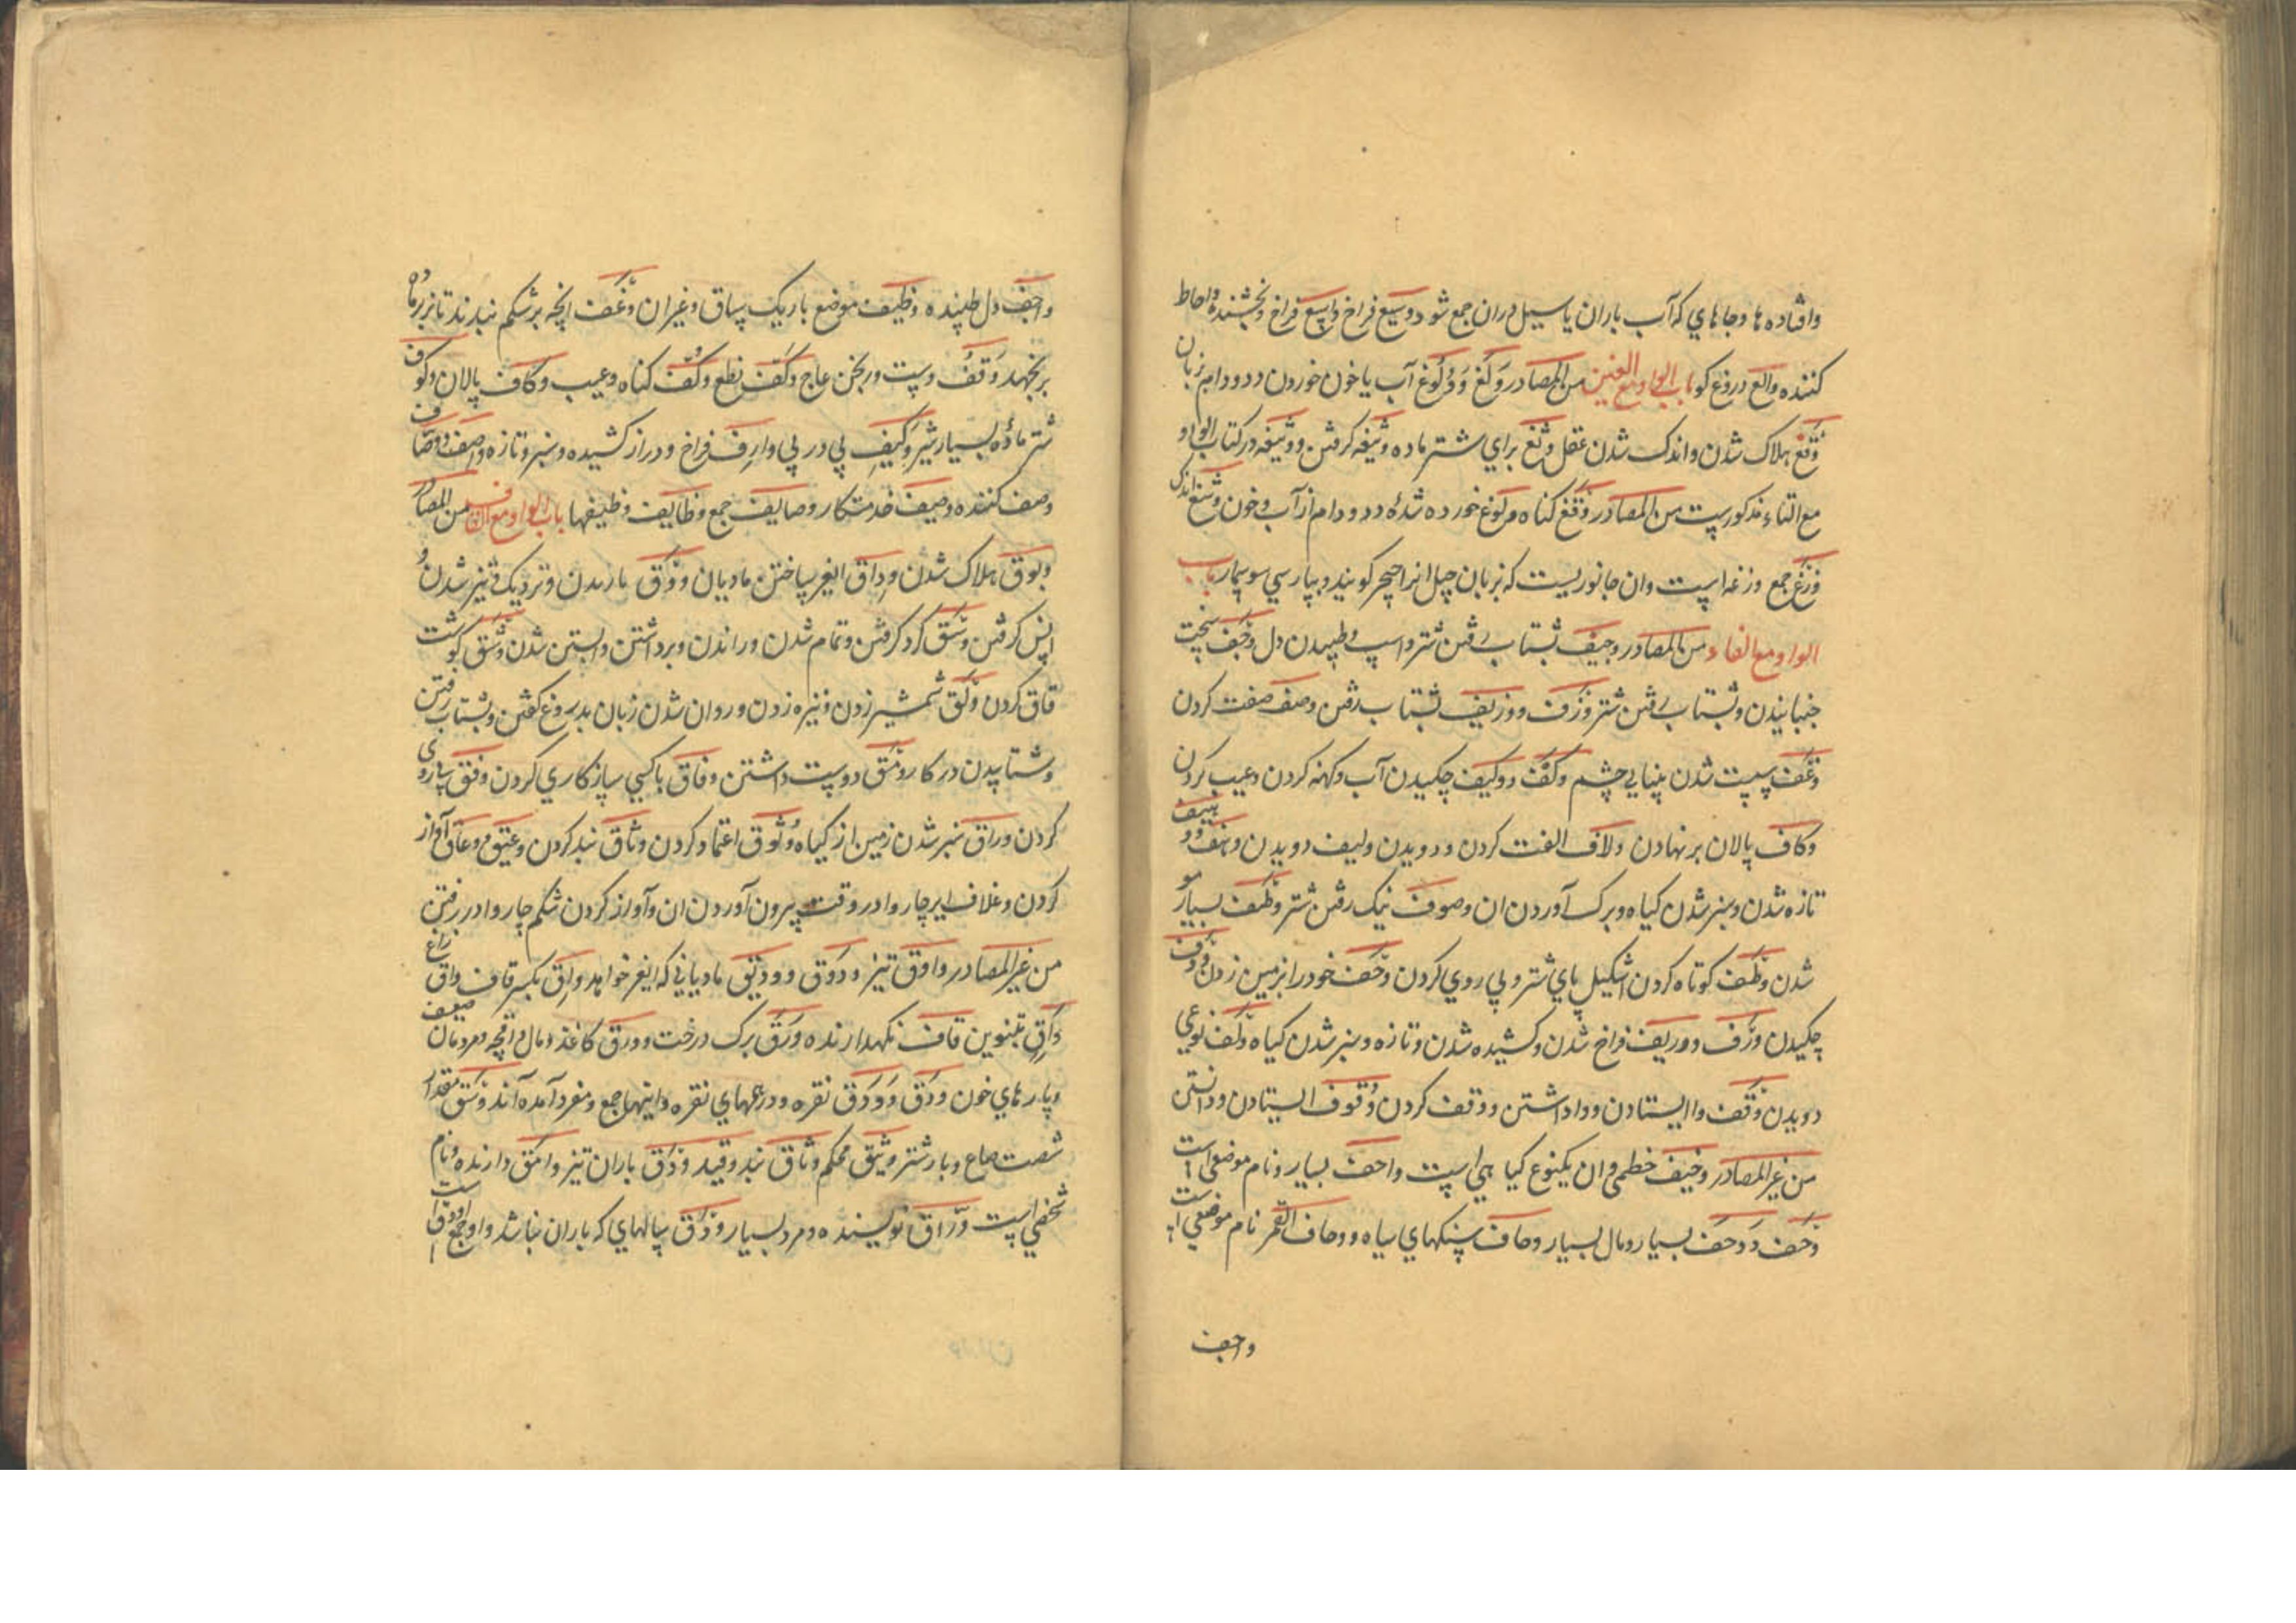 وافتاده ها و جاهاي که آب باران یا سیل دران جمع شود وسیع فراخ واسع فراخ و بخشنده و احاطه
کننده والع دروغ کو باب الواو مع الغین من المصادر ولغ و ولوغ آب یا خون خوردن دد و دام بزبان
وتغ هلاک شدن و اندک شدن عقل وثغ براي شتر ماده وثیغه کرفتن و وثیغه در کتاب الواو
مع التاء مذکورست من المصادر وتغ کناه ولوغ خورده شدهٔ دد و دام از آب و خون وشغ اندک
وزغ جمع وزغه است وان جانوریست که بزبان جیل انرا چچر کویند و بپارسي سوسمار باب
الواو مع الفاء من المصادر وجیف بشتاب رفتن شتر و اسپ و طپیدن دل وجف سخت
جنبانیدن و بشتاب رفتن شتر وزف و وزیف بشتاب رفتن وصف صفت کردن
وغف سست شدن بینایي چشم وکف و وکیف چکیدن آب و کهنه کردن و عیب کردن
وکاف پالان بر نهادن ولاف الفت کردن و دویدن ولیف دویدن وهف و وهیف
تازه شدن و سبز شدن کیاه و برک آوردن ان وصوف نیک رفتن شتر وطف بسیار مو
شدن وظف کوتاه کردن اشکیل پاي شتر و پي روي کردن وحف خود را بر زمین زدن وذف
چکیدن ورف و وریف فراخ شدن و کشیده شدن و تازه و سبز شدن کیاه ولف نوعي
دویدن وقف وا ایستادن و وا داشتن و وقف کردن وقوف ایستادن و دانستن
من غیر المصادر وخیف خطمي و ان یکنوع کیاهي است واحف بسیار و نام موضعي است
وحف و وحف بسیار و مال بسیار وحاف سنکهاي سیاه و وحاف القمر نام موضعي است
واجف
واجف دل طپنده وظیف موضع باریک ساق و غیر ان وغف انچه بر شکم بندند تا نر بر ماده
بر نجهد وقف دست ورنجن عاج وکف نطع وکف کناه و عیب وکاف پالان وکوف
شتر مادهٔ بسیار شیر وکیف پي در پي وارف فراخ و دراز کشیده و سبز و تازه واصف و وصاف
وصف کننده وصیف خدمتکار وصایف جمع وظایف وظیفها باب الواو مع القاف من المصادر
وبوق هلاک شدن وداق ایغر ساختن مادیان وودق باریدن و نزدیک و تیز شدن و
انس کرفتن وسق کرد کرفتن و تمام شدن و راندن و برداشتن و ابستن شدن وشق کوشت
قاق کردن ولق شمشیر زدن و نیزه زدن و روان شدن زبان بدروغ کفتن و بشتاب رفتن
و شتابیدن در کار ومق دوست داشتن وفاق با کسي سازکاري کردن وفق سازوري
کردن وراق سبز شدن زمین از کیاه وثوق اعتماد کردن وثاق بند کردن وعیق و وعاق آواز
کردن و غلاف ایر چاروا در وقت بیرون آوردن ان و آواز کردن شکم چاروا در رفتن
من غیر المصادر وادق تیز ودوق و ودیق مادیاني که ایغر خواهد واق بکسر قاف وواق زاغ
واق بتنوین قاف نکهدارنده ورق برک درخت و ورق کاغذ و مال و بچه و مردمان ضعیف
و پارهاي خون ورق و ورق نقره و درمهاي نقره و اینها جمع و مفرد آمده اند وسق مقدار
شصت صاع و بار شتر وثیق محکم وثاق بند و قید ودق باران تیز وامق دارنده و نام
شخصي است وراق نویسنده و مرد بسیار ورق سالهاي که باران نباشد و اورق است